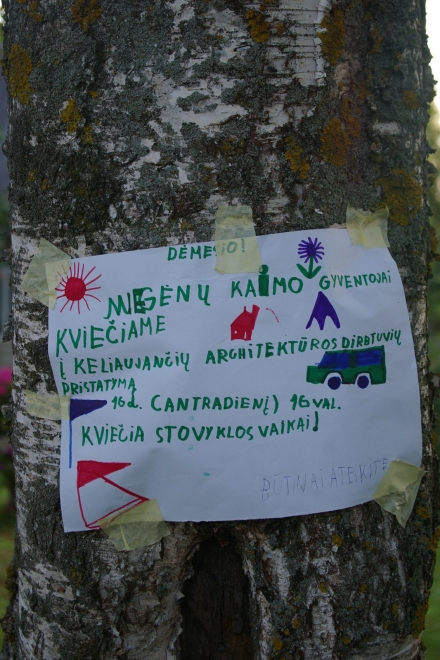 DĖMESIO!
NEGĖNŲ KAIMO GYVENTOJAI
KVIEČIAME
Į KELIAUJANČIŲ ARCHITEKTŪROS DIRBTUVIŲ
PRISTATYMĄ
16 d. (ANTRADIENĮ) 16 VAL.
KVIEČIA STOVYKLOS VAIKAI!
BŪTINAI ATEIKITE